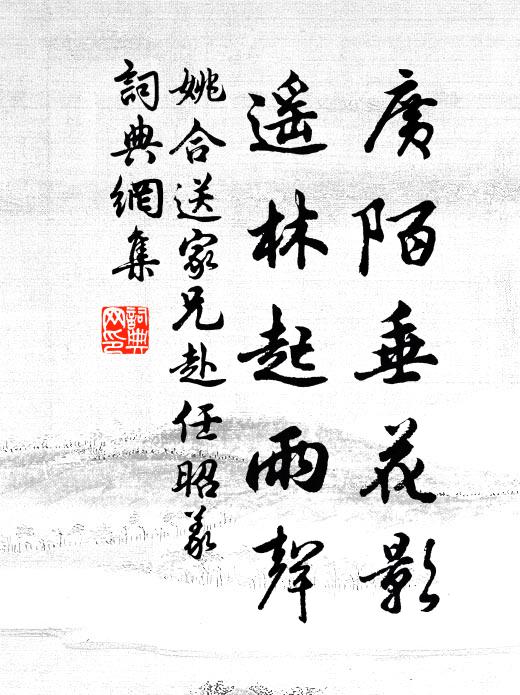 廣陌垂花影
遥林起雨聲
姚合送家兄赴任昭義
詞典網集
詞典网印